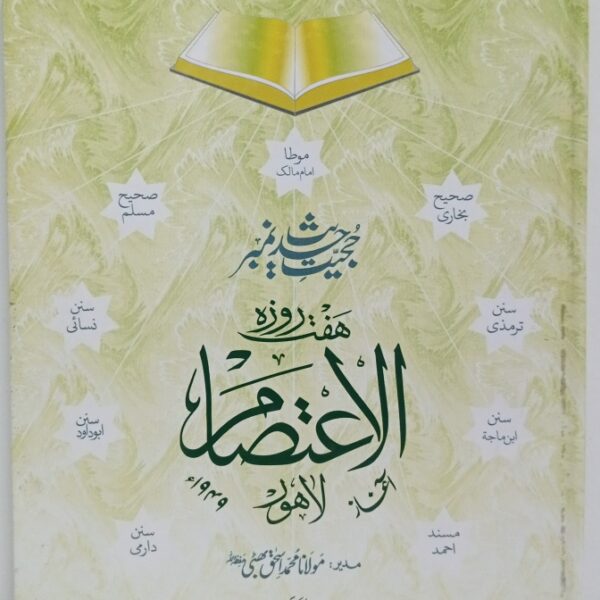 موطا
امام مالک
صحیح
مسلم
صحیح
بخاری
حجیت حدیث نمبر
ہفت روزہ
سنن
نسائی
سنن
ترمذی
الاعتصام
سنن
ابوداود
سنن
ابن ماجة
لاہور
آغاز
۱۹۴۹ء
سنن
دارمی
مسند
احمد
مدیر: مولانا محمد اسحٰق بھٹی